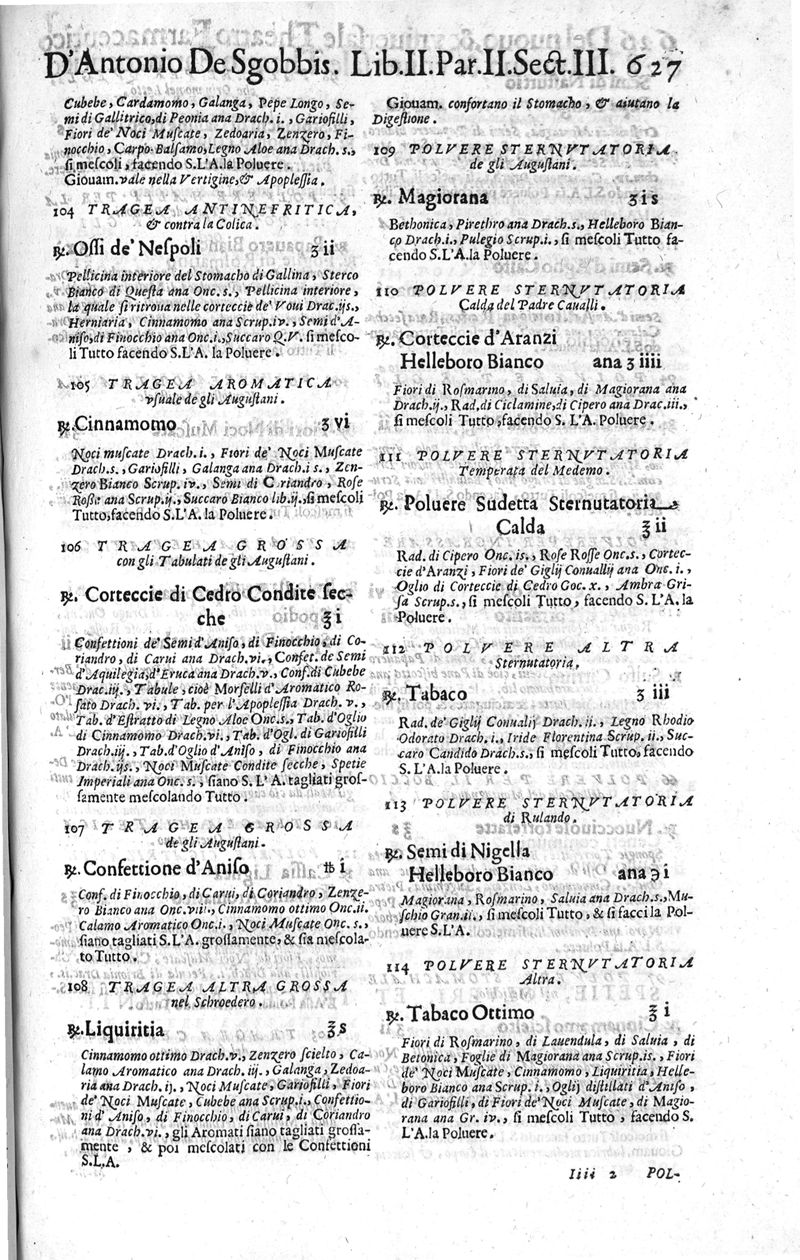 D'Antonio De Sgobbis. Lib.II.Par.II.Sect.III. 627
Cubebe, Cardamomo, Galanga, Pepe Longo, Se-
mi di Gallitrico, di Peonia ana Drach.i., Gariofilli,
Fiori de' Noci Muſcate, Zedoaria, Zenzero, Fi-
nocchio, Carpo Balſamo, Legno Aloe ana Drach.s.,
ſi meſcoli, facendo S.L'A.la Poluere.
Giouam.vale nella Vertigine,& Apopleſſia.
104 TRAGEA ANTINEFRITICA,
& contra la Colica.
℞. Oſſi de' Neſpoli ʒ ii
Pellicina interiore del Stomacho di Gallina, Sterco
Bianco di Queſta ana Onc.s., Pellicina interiore,
la quale ſi ritroua nelle corteccie de' Voui Drac.ijs.,
Herniaria, Cinnamomo ana Scrup.iv., Semi d'A-
niſo, di Finocchio ana Onc.i., Succaro Q.V. ſi meſco-
li Tutto facendo S.L'A. la Poluere.
105 TRAGEA AROMATICA
vſuale de gli Auguſtani.
℞. Cinnamomo ʒ vi
Noci muſcate Drach.i., Fiori de' Noci Muſcate
Drach.s., Gariofilli, Galanga ana Drach.i s., Zen-
zero Bianco Scrup.iv., Semi di Coriandro, Roſe
Roſſe ana Scrup.ij., Succaro Bianco lib.ij., ſi meſcoli
Tutto, facendo S.L'A. la Poluere.
106 TRAGEA GROSSA
con gli Tabulati de gli Auguſtani.
℞. Corteccie di Cedro Condite ſec-
che ℥ i
Confettioni de' Semi d'Aniſo, di Finocchio, di Co-
riandro, di Carui ana Drach.vi., Confet. de Semi
d'Aquilegia, d'Eruca ana Drach.v., Conf.di Cubebe
Drac.iij., Tabule, cioè Morſelli d'Aromatico Ro-
ſato Drach. vi., Tab. per l'Apopleſſia Drach. v.,
Tab. d'Eſtratto di Legno Aloe Onc.s., Tab. d'Oglio
di Cinnamomo Drach.vi., Tab. d'Ogl. di Gariofilli
Drach.iij., Tab.d'Oglio d'Aniſo, di Finocchio ana
Drach.ijs., Noci Muſcate Condite ſecche, Spetie
Imperiali ana Onc.s., ſiano S. L' A. tagliati groſ-
ſamente meſcolando Tutto.
107 TRAGEA GROSSA
de gli Auguſtani.
℞. Confettione d'Aniſo ℔ i
Conf. di Finocchio, di Carui, di Coriandro, Zenze-
ro Bianco ana Onc.viii., Cinnamomo ottimo Onc.ii.
Calamo Aromatico Onc.i., Noci Muſcate Onc. s.,
ſiano tagliati S.L'A. groſſamente, & ſia meſcola-
to Tutto.
108 TRAGEA ALTRA GROSSA
nel Schroedero.
℞. Liquiritia ℥s
Cinnamomo ottimo Drach.v., Zenzero ſcielto, Ca-
lamo Aromatico ana Drach. iij., Galanga, Zedoa-
ria ana Drach. ij., Noci Muſcate, Gariofilli, Fiori
de' Noci Muſcate, Cubebe ana Scrup.i., Confettio-
ni d' Aniſo, di Finocchio, di Carui, di Coriandro
ana Drach.vi., gli Aromati ſiano tagliati groſſa-
mente, & poi meſcolati con le Confettioni
S.L.A.
Giouam. confortano il Stomacho, & aiutano la
Digeſtione.
109 POLVERE STERNVTATORIA
de gli Auguſtani.
℞. Magiorana ʒ i s
Bethonica, Pirethro ana Drach.s., Helleboro Bian-
co Drach.i., Pulegio Scrup.i., ſi meſcoli Tutto fa-
cendo S.L'A.la Poluere.
110 POLVERE STERNVTATORIA
Calda del Padre Caualli.
℞. Corteccie d'Aranzi
Helleboro Bianco ana ʒ iiii
Fiori di Roſmarino, di Saluia, di Magiorana ana
Drach.ij., Rad. di Ciclamine, di Cipero ana Drac.iii.,
ſi meſcoli Tutto, facendo S. L'A. la Poluere.
111 POLVERE STERNVTATORIA
Temperata del Medemo.
℞. Poluere Sudetta Sternutatoria
Calda ℥ ii
Rad. di Cipero Onc. is., Roſe Roſſe Onc.s., Cortec-
cie d'Aranzi, Fiori de' Giglij Conuallij ana Onc. i.,
Oglio di Corteccie di Cedro Goc. x., Ambra Gri-
ſa Scrup.s., ſi meſcoli Tutto, facendo S. L'A. la
Poluere.
112 POLVERE ALTRA
Sternutatoria,
℞. Tabaco ʒ iii
Rad. de' Giglij Conualij Drach. ii., Legno Rhodio
Odorato Drach. i., Iride Florentina Scrup. ii., Suc-
caro Candido Drach.s., ſi meſcoli Tutto, facendo
S. L'A.la Poluere.
113 POLVERE STERNVTATORIA
di Rulando.
℞. Semi di Nigella
Helleboro Bianco ana ℈ i
Magiorana, Roſmarino, Saluia ana Drach.s., Mu-
ſchio Gran.ii., ſi meſcoli Tutto, & ſi facci la Pol-
uere S.L'A.
114 POLVERE STERNVTATORIA
Altra.
℞. Tabaco Ottimo ℥ i
Fiori di Roſmarino, di Lauendula, di Saluia, di
Betonica, Foglie di Magiorana ana Scrup.is., Fiori
de' Noci Muſcate, Cinnamomo, Liquiritia, Helle-
boro Bianco ana Scrup. i., Oglij diſtillati d'Aniſo,
di Gariofilli, di Fiori de' Noci Muſcate, di Magio-
rana ana Gr. iv., ſi meſcoli Tutto, facendo S.
L'A.la Poluere.
Iiii 2 POL-